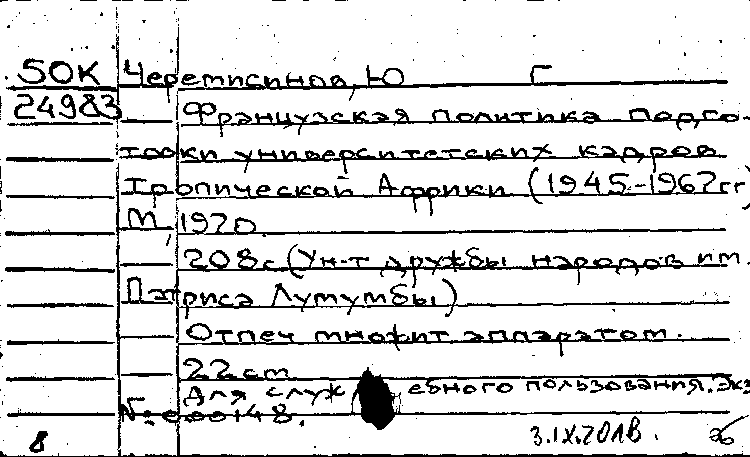 50К Черемисинов, Ю Г
24983 Французская политика подго-
товки университетских кадров
Тропической Африки (1945-1967гг)
М, 1970.
208с (Ун-т дружбы народов им.
Патриса Лумумбы)
Отпеч множит аппаратом.
22 cm
Для служебного пользования. Экз
№ 000148.
8 3.IX.70